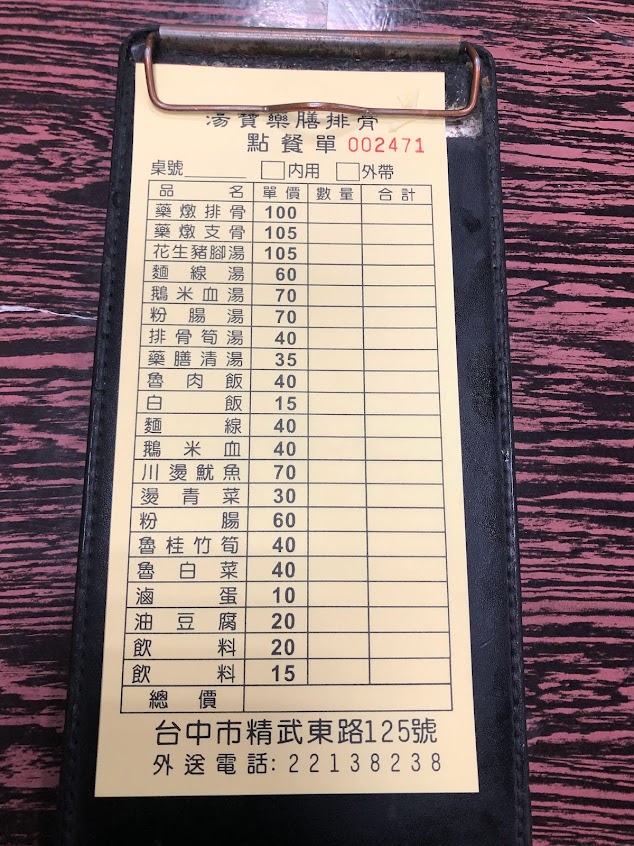 湯寶藥膳排骨
點餐單 002471
桌號______ □內用 □外帶
品名 單價 數量 合計
藥燉排骨 100
藥燉支骨 105
花生豬腳湯 105
麵線湯 60
鵝米血湯 70
粉腸湯 70
排骨筍湯 40
藥膳清湯 35
魯肉飯 40
白飯 15
麵線 40
鵝米血 40
川燙魷魚 70
燙青菜 30
粉腸 60
魯桂竹筍 40
魯白菜 40
滷蛋 10
油豆腐 20
飲料 20
飲料 15
總價
台中市精武東路125號
外送電話:22138238